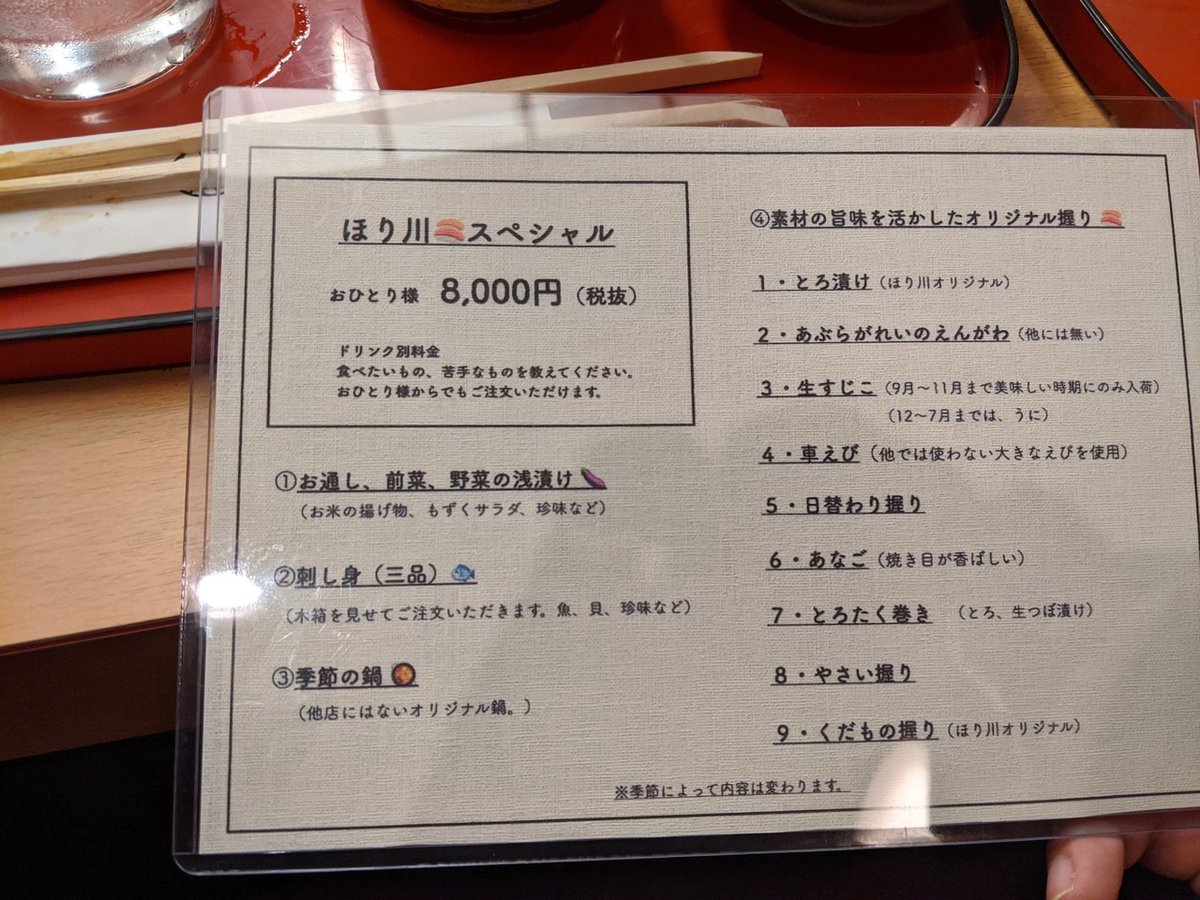 ほり川🍣スペシャル
おひとり様 8,000円（税抜）
ドリンク別料金
食べたいもの、苦手なものを教えてください。
おひとり様からでもご注文いただけます。
①お通し、前菜、野菜の浅漬け🍆
（お米の揚げ物、もずくサラダ、珍味など）
②刺し身（三品）🐟
（木箱を見せてご注文いただきます。魚、貝、珍味など）
③季節の鍋🍲
（他店にはないオリジナル鍋。）
④素材の旨味を活かしたオリジナル握り🍣
1・とろ漬け（ほり川オリジナル）
2・あぶらがれいのえんがわ（他には無い）
3・生すじこ（9月～11月まで美味しい時期にのみ入荷）
（12～7月までは、うに）
4・車えび（他では使わない大きなえびを使用）
5・日替わり握り
6・あなご（焼き目が香ばしい）
7・とろたく巻き （とろ、生つぼ漬け）
8・やさい握り
9・くだもの握り（ほり川オリジナル）
※季節によって内容は変わります。